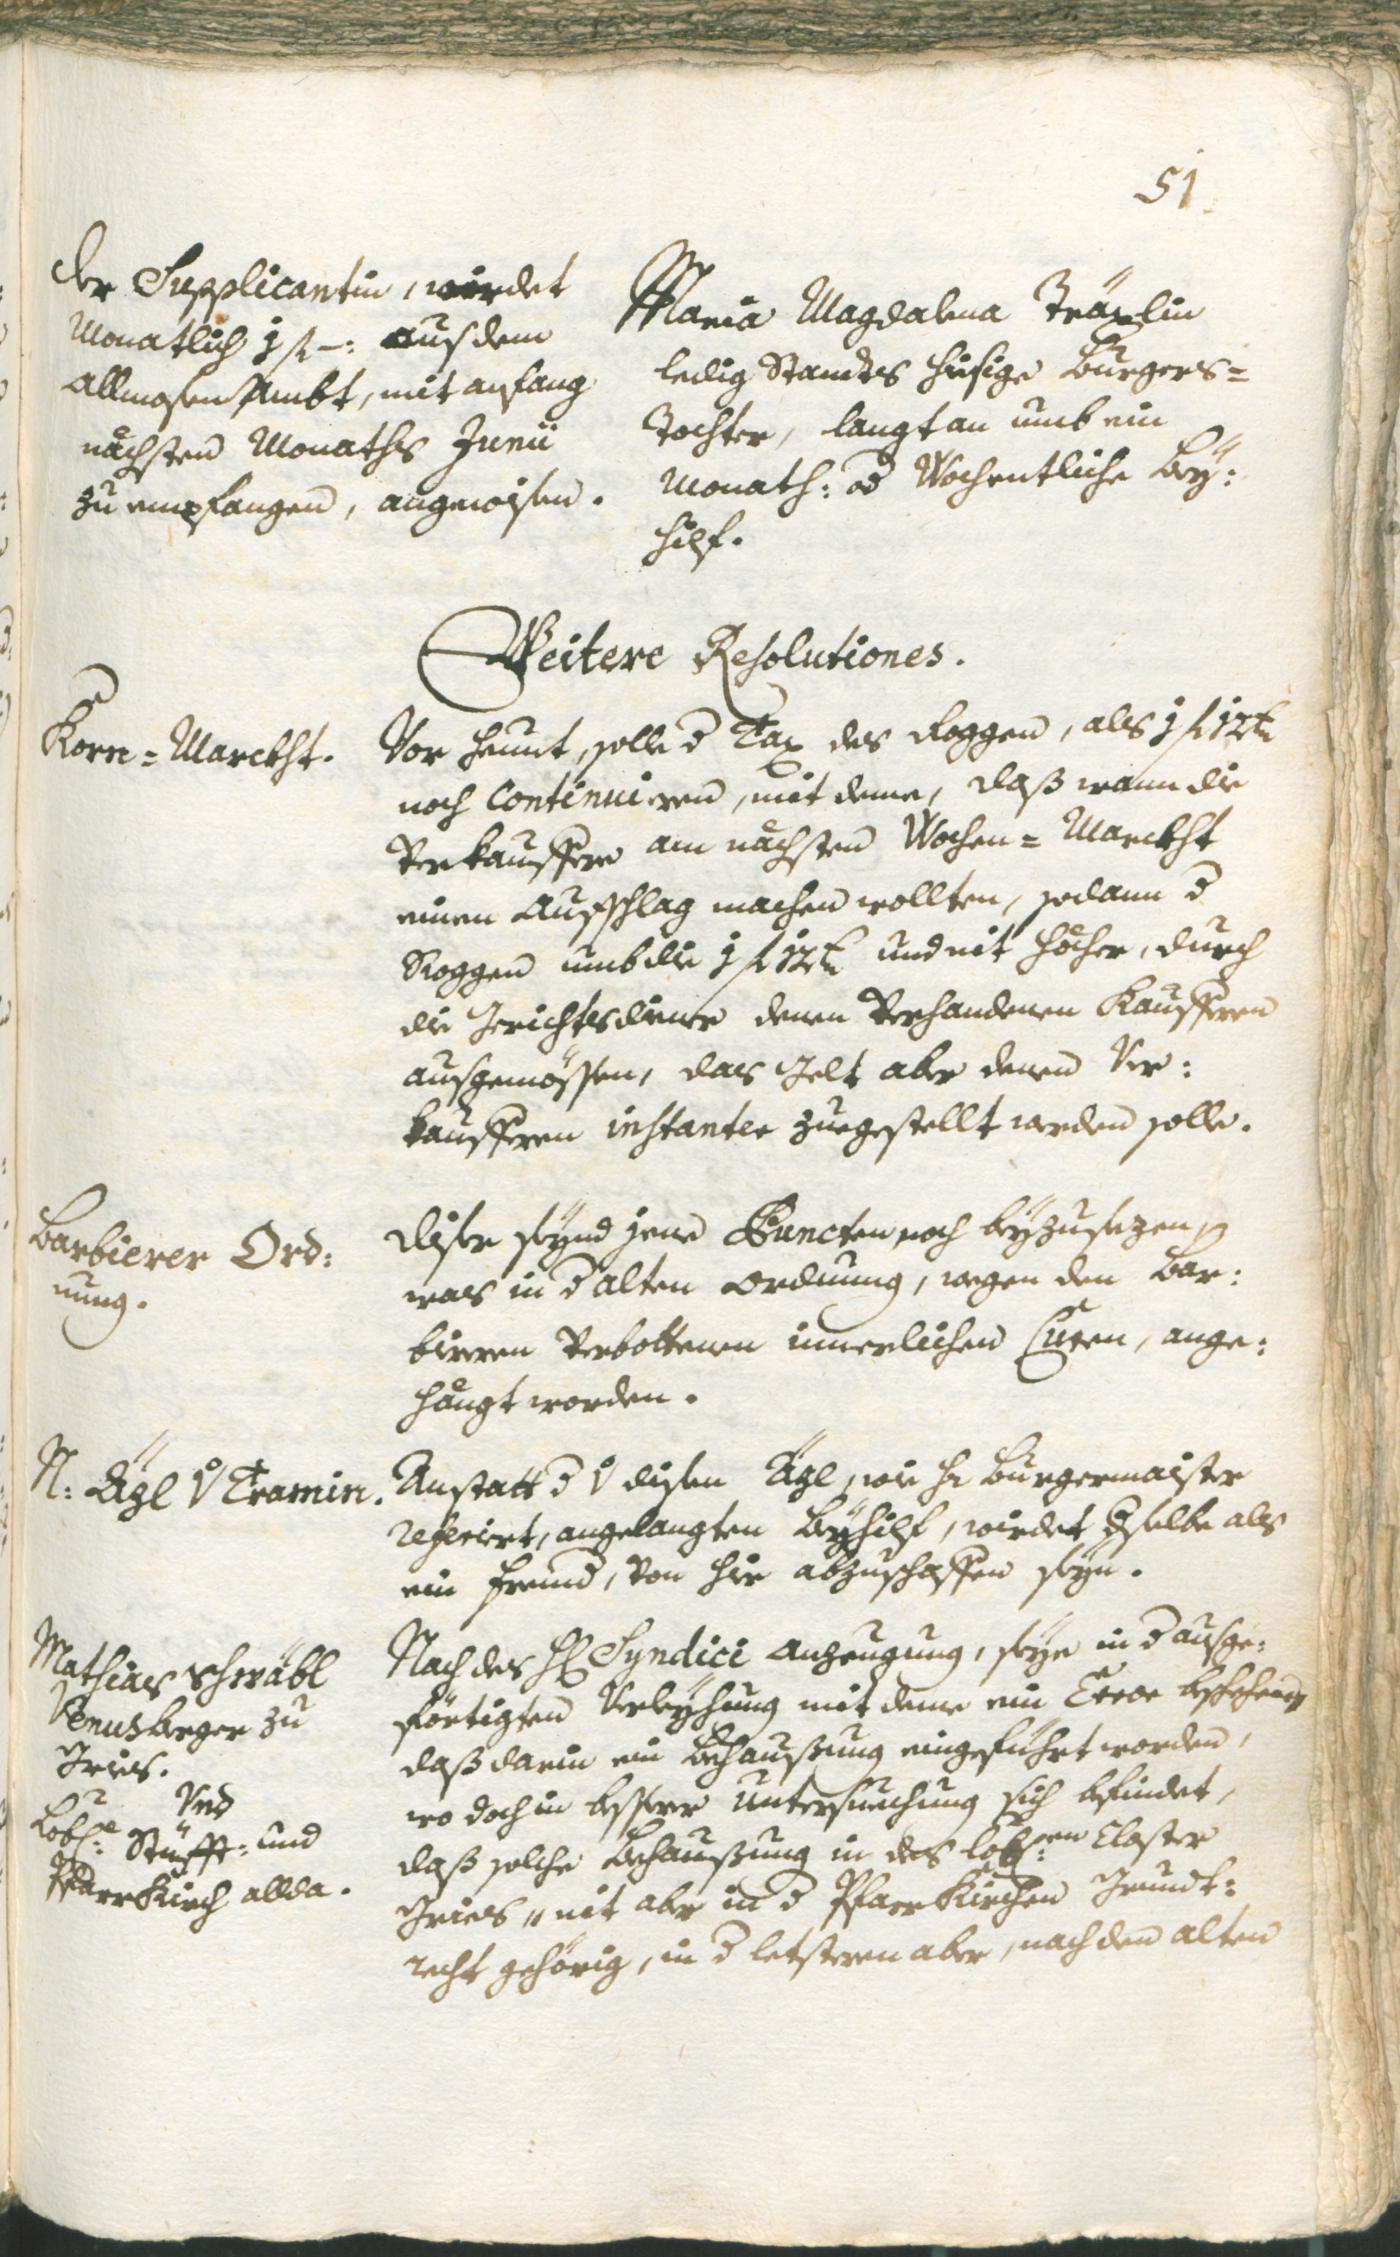 51
Der Supplicantin, wirdet
Monatlich 1 f –: aus dem
Allmosen Ambt, mit anfang
nächsten Monaths Junii
zu empfangen, angewisen.
Maria Magdalena
ledig Standts hiesige Burgers=
Tochter, langt an umb ein
Monath: od Wochentliche Bey:
hilf.
Weitere Resolutiones.
Korn=Marckht.
Vor heunt, solle d Tax des Roggen, als 1 f 12 k
noch continuieren, mit deme, daß wann die
Verkauffere am nächsten Wochen=Marckht
einen Aufschlag machen wollten, sodann d
Roggen umb die 1 f 12 k und nit höcher, durch
die Gerichtsdiener denen Verhandenen Kaufferen
ausgemössen, das Gelt aber denen Ver:
kaufferen instanter zuegestellt werden solle.
Barbierer Ord:
nung.
Diser seynd jene Puncten noch beyzusezen,
was in d alten Ordnung, wegen den Bar:
bieren Verbottenen innerlichen Curen, ange:
hängt worden.
N: Äzl v Tramin.
Anstatt d v disen Äzl, wie H Burgermaister
referiert, angelangten Beyhilf, wirdet dselbe als
ein frembd, von hier abzuschaffen seyn.
Mathias Schwäbl
Venusberger zu
Gries.
Und
Lobl:e Stüfft= und
Pfarrkirch allda.
Nach des H Syndici Anzeugung, seye in d ausge:
förtigten Verleyhung mit deme ein Error beschehen,
daß darin ein Behaußung eingeführt worden,
wo doch in besserer Untersuechung sich befindet,
daß solche Behaußung in des Lobl:en Closter
Gries, nit aber in d Pfarrkirchen Grundt:
recht gehörig, in d letsteren aber, nach den alten